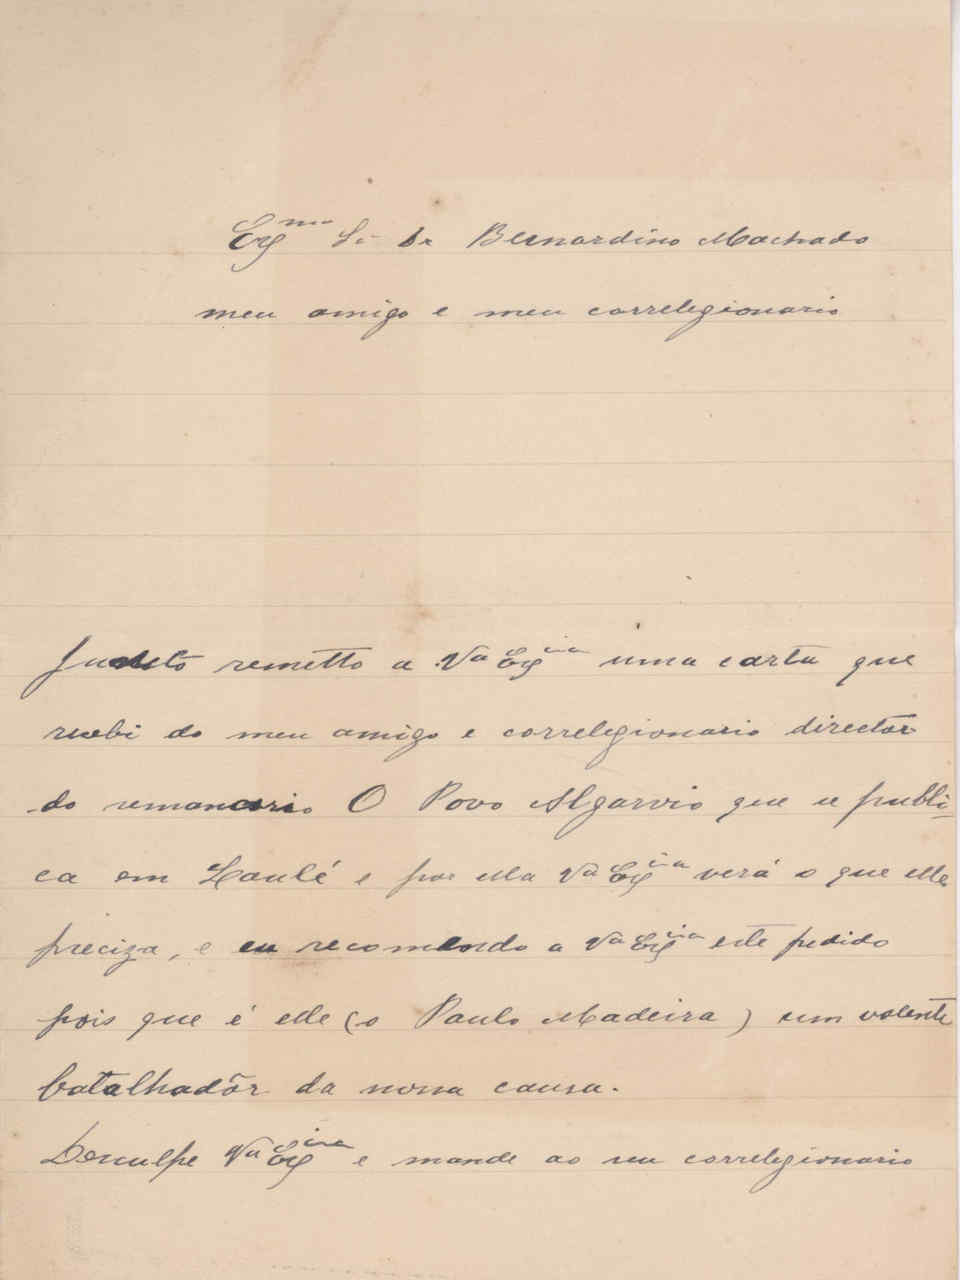 Exmo Sr Dr Bernardino Machado
meu amigo e meu correlegionario
Junto remetto a Va Excia uma carta que
recebi do meu amigo e correlegionario directôr
do semanario O Povo Algarvio que se publi-
ca em Loulé e por ella Va Excia verá o que elle
preciza, e eu recomendo a Va Excia este pedido
pois que é elle (o Paulo Madeira) um valente
batalhadôr da nossa causa.
Desculpe Va Excia e mande ao seu correlegionario